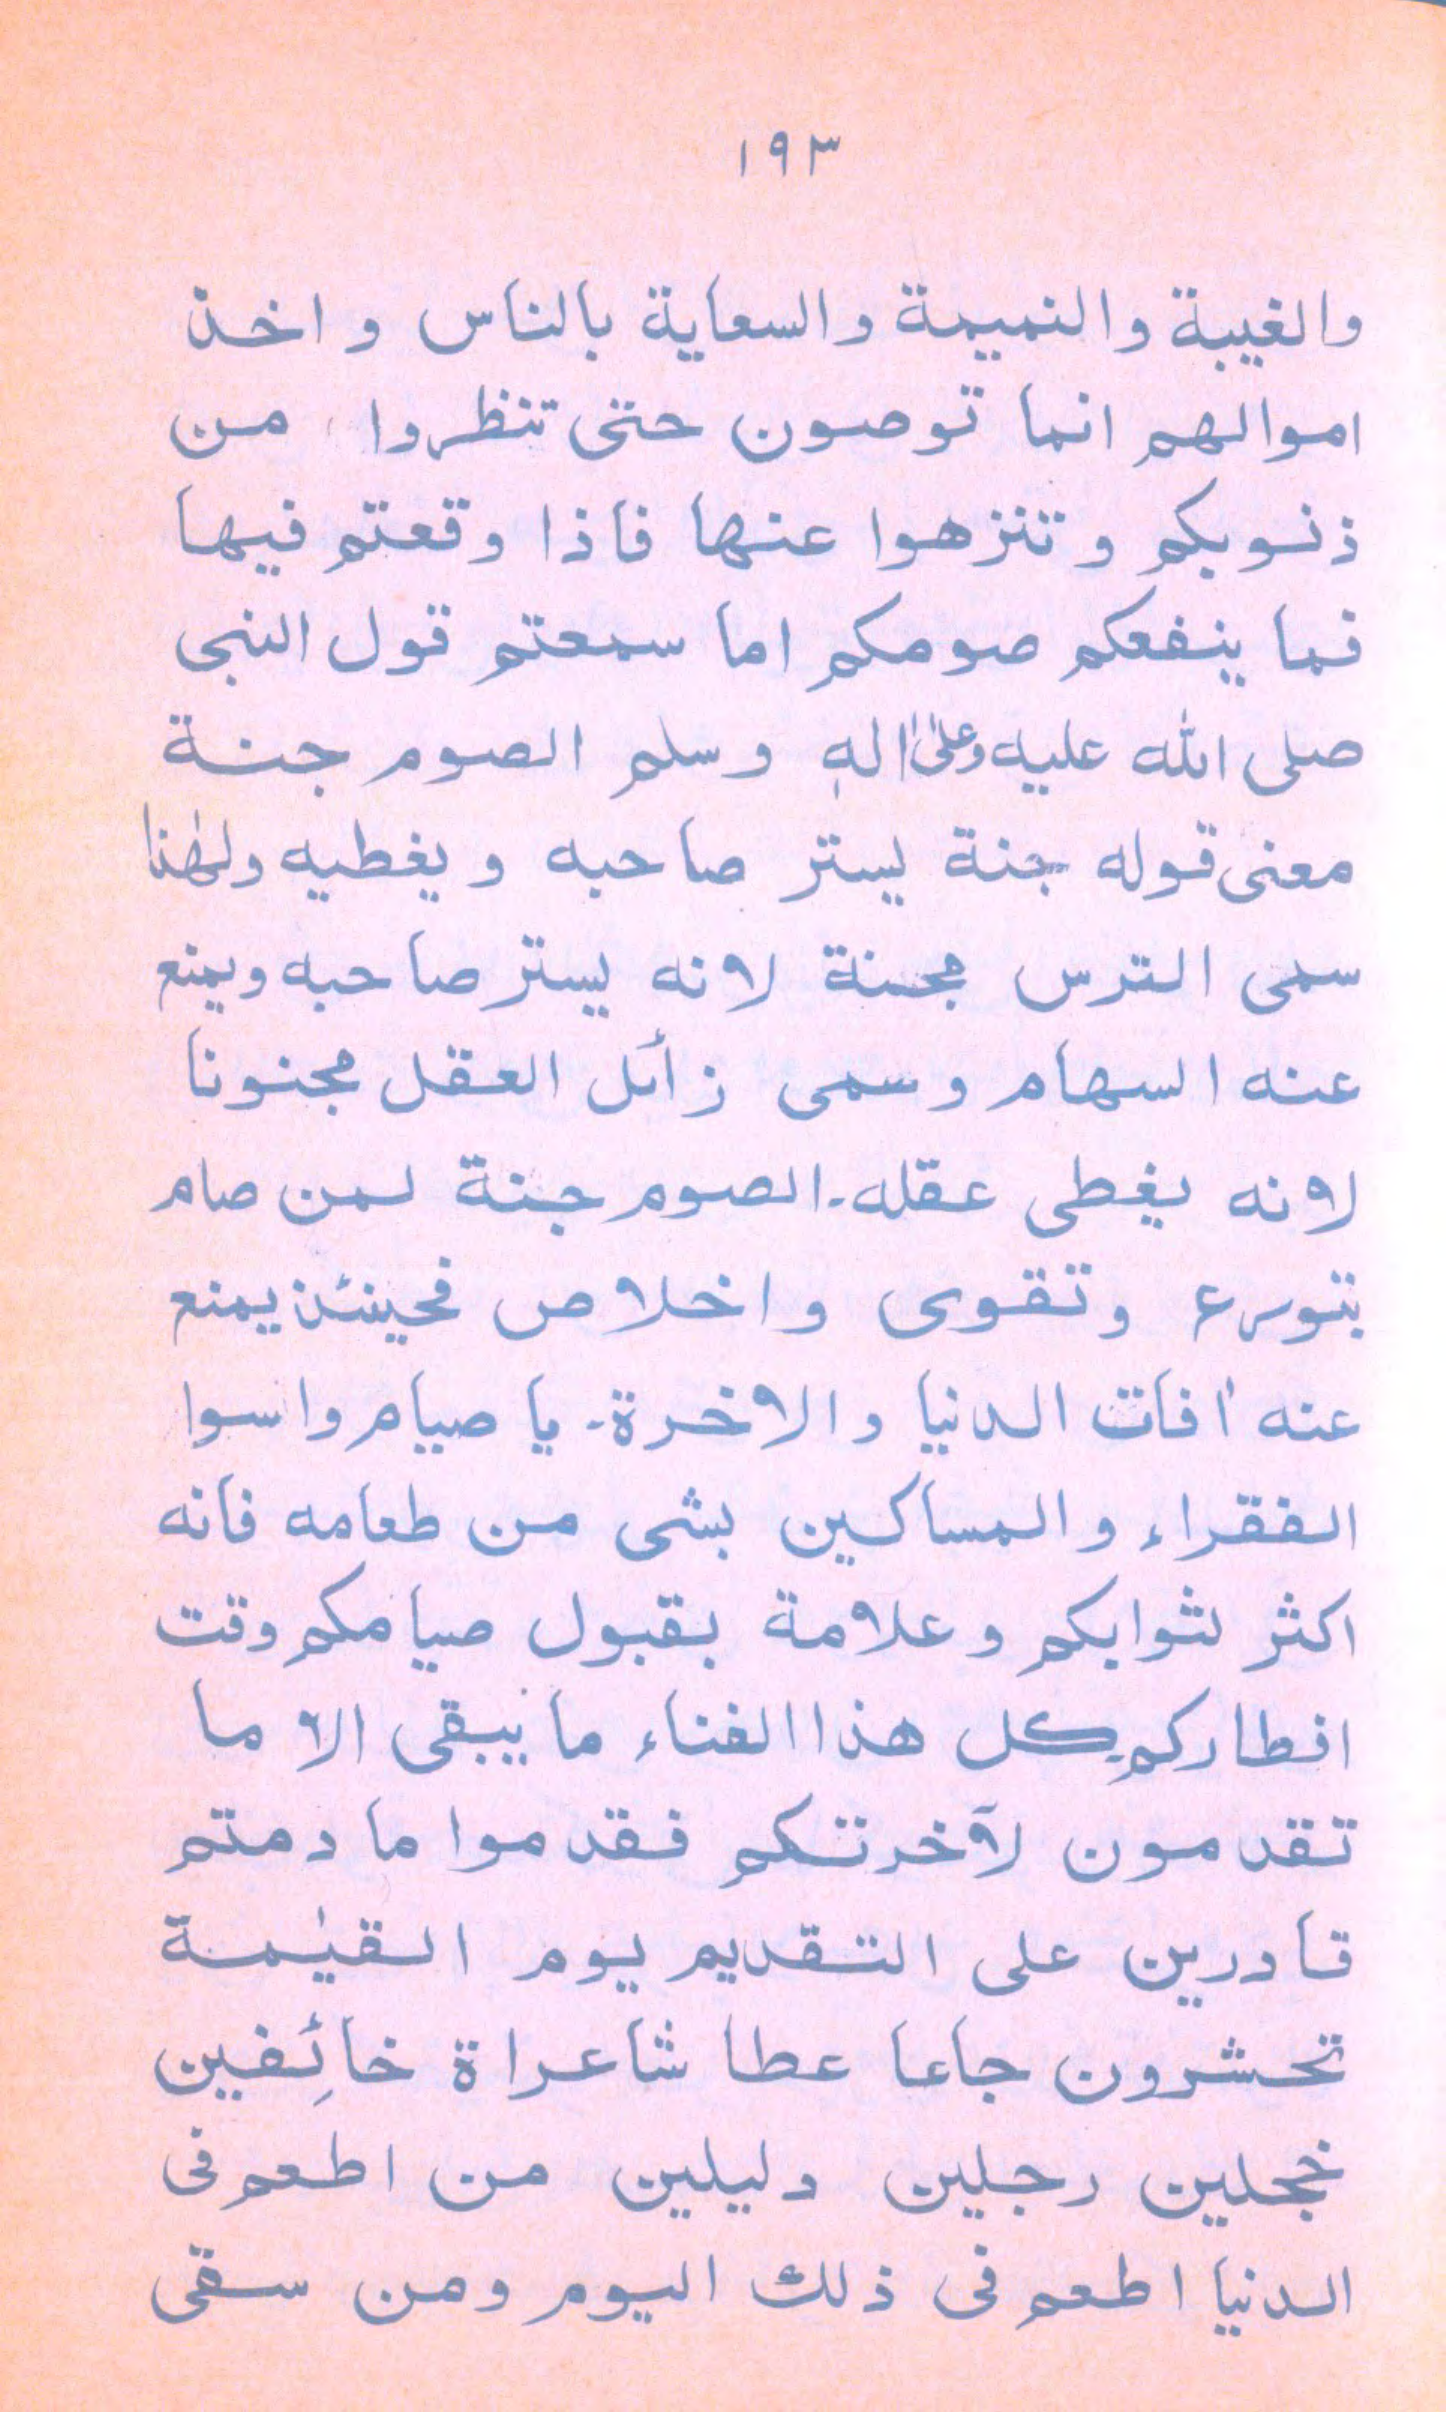 ١٩٣
والغيبة والنميمة والسعاية بالناس واخذ
اموالهم انما توصون حتى تنظروا من
ذنوبكم وتنزهوا عنها فاذا وقعتم فيها
فما ينفعكم صومكم اما سمعتم قول النبى
صلى الله عليه وعلىٰ اٰلهٖ وسلم الصوم جنة
معنى قوله جنة يستر صاحبه ويغطيه ولهٰذا
سمى الترس مجنة لانه يستر صاحبه ويمنع
عنه السهام وسمى زائل العقل مجنونا
لانه يغطى عقله۔ الصوم جنة لمن صام
بتورع وتقوى واخلاص فحينئذ يمنع
عنه اٰفات الدنيا والاخرة۔ يا صيام واسوا
الفقراء والمساكين بشى من طعامه فانه
اكثر لثوابكم وعلامة بقبول صيامكم وقت
افطاركم۔ كل هذا الفناء ما يبقى الا ما
تقدمون لآخرتكم فقدموا ما دمتم
قادرين على التقديم يوم القيٰمة
تحشرون جاعا عطاشا عراة خائِفين
خجلين رجلين دليلين من اطعم فى
الدنيا اطعم فى ذلك اليوم ومن سقى